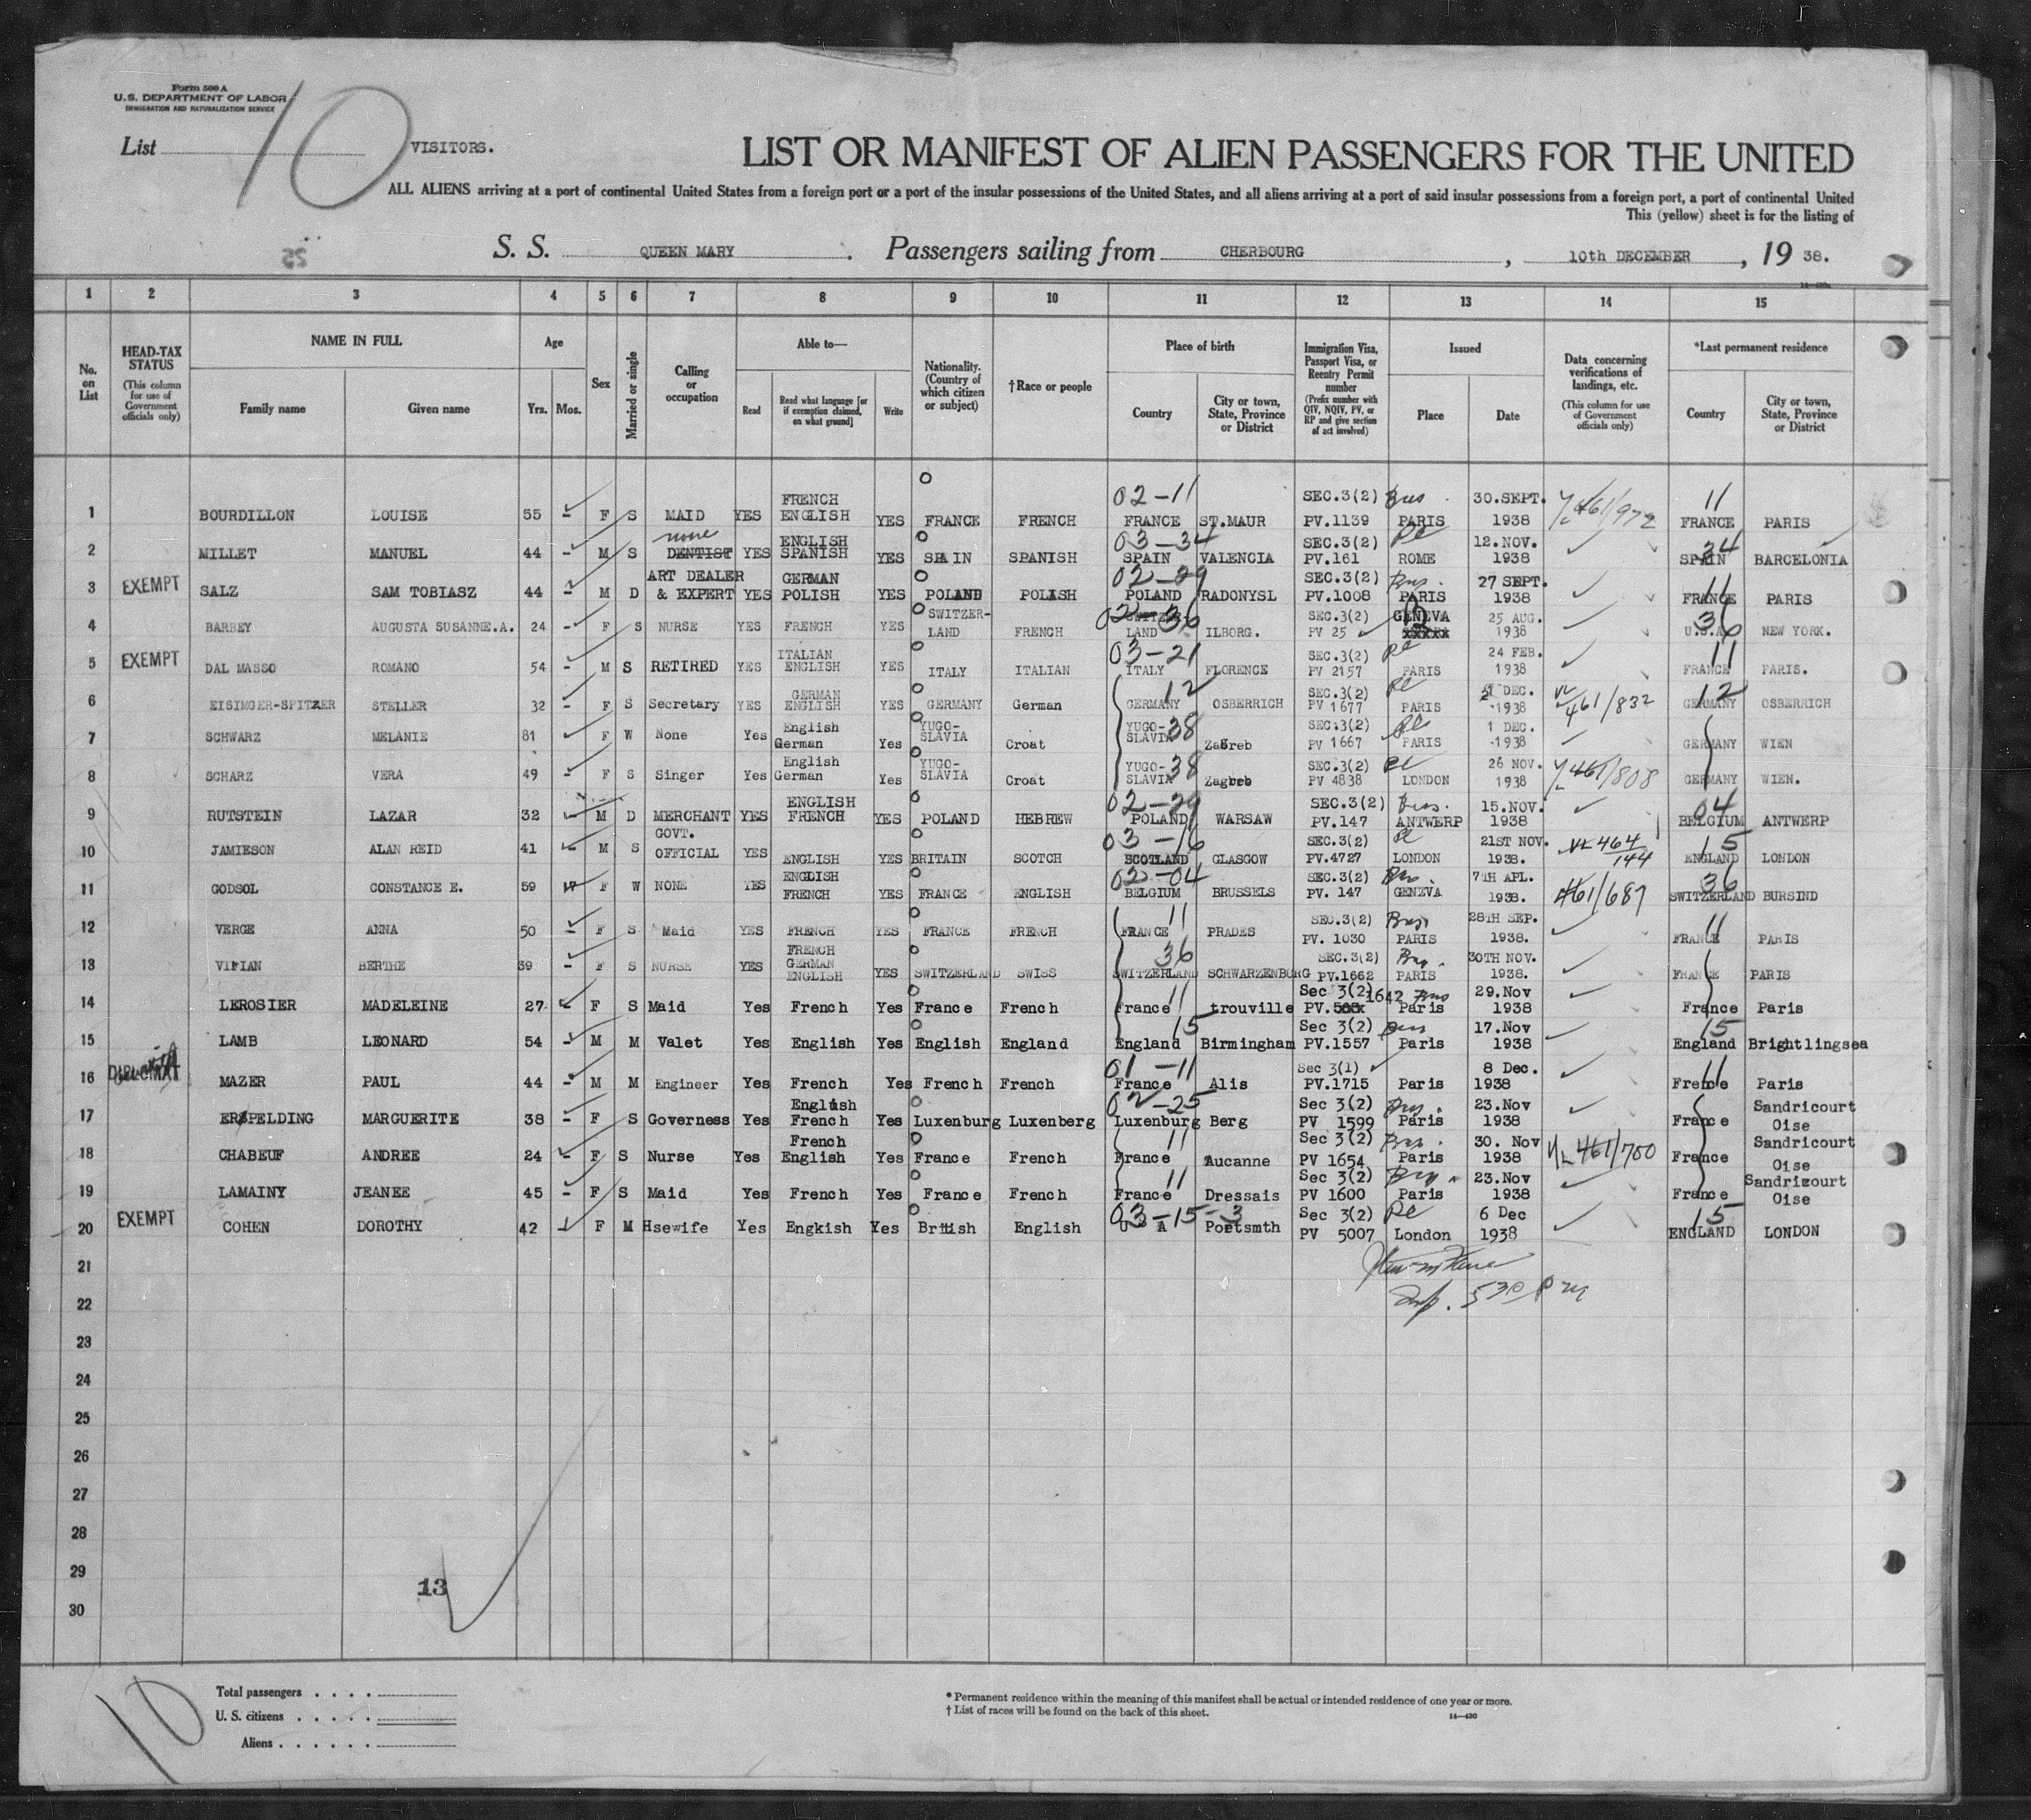 Form 500 A
U.S. DEPARTMENT OF LABOR
IMMIGRATION AND NATURALIZATION SERVICE
List 10 VISITORS.
LIST OR MANIFEST OF ALIEN PASSENGERS FOR THE UNITED
ALL ALIENS arriving at a port of continental United States from a foreign port or a port of the insular possessions of the United States, and all aliens arriving at a port of said insular possessions from a foreign port, a port of continental United
This (yellow) sheet is for the listing of
25
S. S. QUEEN MARY. Passengers sailing from CHERBOURG, 10th DECEMBER, 19 38.
1 2 3 4 5 6 7 8 9 10 11 12 13 14 15
No. on List
HEAD-TAX STATUS (This column for use of Government officials only)
NAME IN FULL
Family name Given name
Age
Yrs. Mos.
Sex
Married or single
Calling or occupation
Able to—
Read Read what language [or if exemption claimed, on what ground] Write
Nationality. (Country of which citizen or subject)
†Race or people
Place of birth
Country City or town, State, Province or District
Immigration Visa, Passport Visa, or Reentry Permit number (Prefix number with QIV, NQIV, PV, or RP and give section of act involved)
Issued
Place Date
Data concerning verifications of landings, etc. (This column for use of Government officials only)
*Last permanent residence
Country City or town, State, Province or District
1 BOURDILLON LOUISE 55 - F S MAID YES FRENCH ENGLISH YES FRANCE FRENCH 02-11 FRANCE ST.MAUR SEC.3(2) PV.1139 PARIS 30.SEPT. 1938 461/972 11 FRANCE PARIS
2 MILLET MANUEL 44 - M S none DENTIST YES ENGLISH SPANISH YES SPAIN SPANISH 03-34 SPAIN VALENCIA SEC.3(2) PV.161 ROME 12.NOV. 1938 34 SPAIN BARCELONIA
3 EXEMPT SALZ SAM TOBIASZ 44 - M D ART DEALER & EXPERT YES GERMAN POLISH YES POLAND POLISH 02-29 POLAND RADONYSL SEC.3(2) PV.1008 PARIS 27 SEPT. 1938 11 FRANCE PARIS
4 BARBEY AUGUSTA SUSANNE.A. 24 - F S NURSE YES FRENCH YES SWITZER-LAND FRENCH 02-36 SWITZER-LAND ILBORG. SEC.3(2) PV 25 GENEVA xxxxx 25 AUG. 1938 36 U.S.A. NEW YORK.
5 EXEMPT DAL MASSO ROMANO 54 - M S RETIRED YES ITALIAN ENGLISH YES ITALY ITALIAN 03-21 ITALY FLORENCE SEC.3(2) PV 2157 PARIS 24 FEB. 1938 11 FRANCE PARIS.
6 EISINGER-SPITZER STELLER 32 - F S Secretary YES GERMAN ENGLISH YES GERMANY German 12 GERMANY OSBERRICH SEC.3(2) PV 1677 PARIS DEC. 1938 461/832 12 GERMANY OSBERRICH
7 SCHWARZ MELANIE 81 F W None Yes English German Yes YUGO-SLAVIA Croat YUGO-SLAVIA 38 Zagreb SEC.3(2) PV 1667 PARIS 1 DEC. 1938 GERMANY WIEN
8 SCHARZ VERA 49 - F S Singer Yes English German Yes YUGO-SLAVIA Croat YUGO-SLAVIA 38 Zagreb SEC.3(2) PV 4838 LONDON 26 NOV. 1938 461/808 GERMANY WIEN.
9 RUTSTEIN LAZAR 32 - M D MERCHANT YES ENGLISH FRENCH YES POLAND HEBREW 02-29 POLAND WARSAW SEC.3(2) PV.147 ANTWERP 15.NOV. 1938 04 BELGIUM ANTWERP
10 JAMIESON ALAN REID 41 - M S GOVT. OFFICIAL YES ENGLISH YES BRITAIN SCOTCH 03-16 SCOTLAND GLASGOW SEC.3(2) PV.4727 LONDON 21ST NOV. 1938. 464/144 15 ENGLAND LONDON
11 GODSOL CONSTANCE E. 59 F W NONE YES ENGLISH FRENCH YES FRANCE ENGLISH 02-04 BELGIUM BRUSSELS SEC.3(2) PV. 147 GENEVA 7TH APL. 1938. 461/687 36 SWITZERLAND BURSIND
12 VERGE ANNA 50 - F S Maid YES FRENCH YES FRANCE FRENCH 11 FRANCE PRADES SEC.3(2) PV. 1030 PARIS 28TH SEP. 1938. 11 FRANCE PARIS
13 VIVIAN BERTHE 39 - F S NURSE YES FRENCH GERMAN ENGLISH YES SWITZERLAND SWISS 36 SWITZERLAND SCHWARZENBURG SEC.3(2) PV.1662 PARIS 30TH NOV. 1938. FRANCE PARIS
14 LEROSIER MADELEINE 27 F S Maid Yes French Yes France French 11 France trouville Sec 3(2) PV. 1642 Paris 29.Nov 1938 France Paris
15 LAMB LEONARD 54 - M M Valet Yes English Yes English England 15 England Birmingham Sec 3(2) PV.1557 Paris 17.Nov 1938 15 England Brightlingsea
16 DIPLOMAT MAZER PAUL 44 - M M Engineer Yes French Yes French French 01-11 France Alis Sec 3(1) PV.1715 Paris 8 Dec. 1938 11 France Paris
17 ERSPELDING MARGUERITE 38 - F S Governess Yes English French Yes Luxenburg Luxenberg 02-25 Luxenburg Berg Sec 3(2) PV 1599 Paris 23.Nov 1938 France Sandricourt Oise
18 CHABEUF ANDREE 24 - F S Nurse Yes French English Yes France French 11 France Aucanne Sec 3(2) PV 1654 Paris 30. Nov 1938 461/700 France Sandricourt Oise
19 LAMAINY JEANEE 45 - F S Maid Yes French Yes France French 11 France Dressais Sec 3(2) PV 1600 Paris 23.Nov 1938 France Sandricourt Oise
20 EXEMPT COHEN DOROTHY 42 F M Hsewife Yes Engkish Yes British English 03-15-3 U A Poetsmth Sec 3(2) PV 5007 London 6 Dec 1938 15 ENGLAND LONDON
21
22 530 P M
23
24
25
26
27
28
29
13
30
10
Total passengers . . . .
U. S. citizens . . . . .
Aliens . . . . . .
* Permanent residence within the meaning of this manifest shall be actual or intended residence of one year or more.
† List of races will be found on the back of this sheet.
14—430